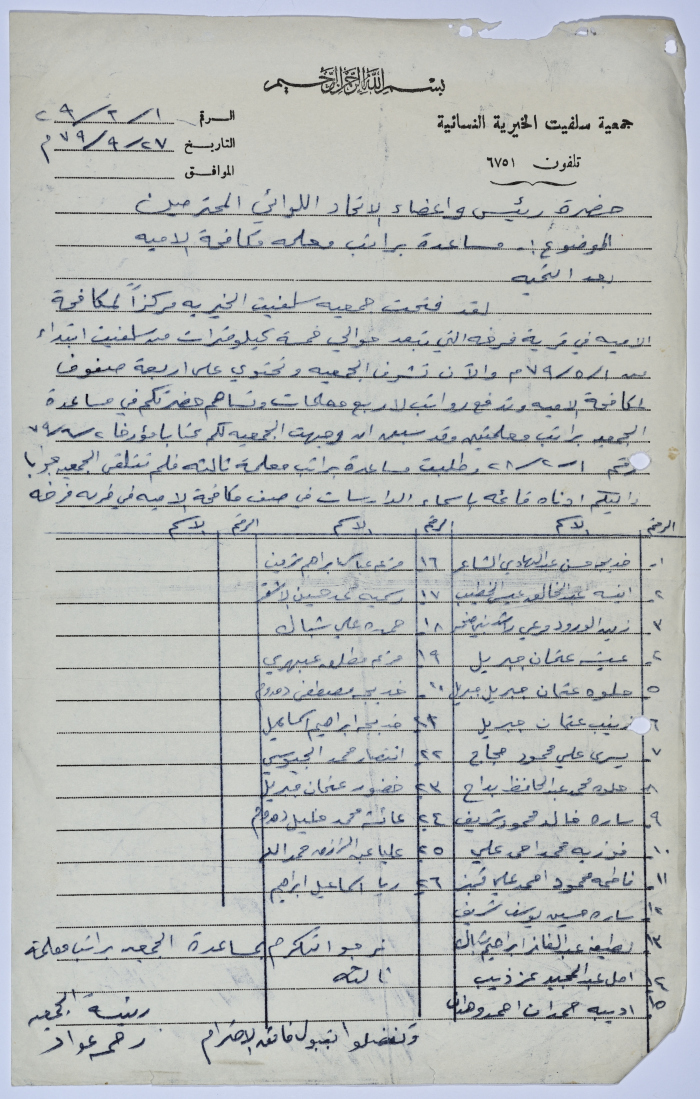 بسم الله الرحمن الرحيم
جمعية سلفيت الخيرية النسائية
تلفون ٦٧٥١
الرقم ٢٩/٢/١
التاريخ ٧٩/٩/٢٧م
الموافق
حضرة رئيس واعضاء الاتحاد اللوائي المحترمين
الموضوع :- مساعدة براتب معلمه مكافحة الاميه
بعد التحيه
لقد فتحت جمعيه سلفيت الخيريه مركزاً لمكافحة
الاميه في قرية فرخه التي تبعد حوالي خمسة كيلومترات من سلفيت ابتداء
من ٧٩/٥/١م والآن تشرف الجمعيه وتحتوي على اربعة صفوف
لمكافحة الاميه وتدفع رواتب لاربع معلمات وتساهم حضرتكم في مساعدة
الجمعيه براتب معلمتين وقد سبق ان وجهت الجمعيه لكم كتابا مؤرخا ٧٩/٩/٢
رقم ٢٨/٢/١ وطلبت مساعدة براتب معلمة ثالثه فلم تتلقى الجمعيه جوابا
واليكم ادناه قائمه باسماء الدارسات في صف مكافحة الاميه في قريه فرخه
الرقم الاسم الرقم الاسم الرقم الاسم
١. خديجه حسن عبد الهادي الشاعر ١٦
٢. امنه عبد الخالق الخطيب ١٧ رسميه حسين الاشقر
٣. ١٨ حمده علي شبال
٤. عيشه عثمان جبريل ١٩ مريم
٥ حلوه عثمان جبريل ٢٠. خديجه مصطفى
٦ زينب عثمان جبريل ٢١ خديجه ابراهيم اسماعيل
٧ يسرى علي محمود حجاج ٢٢ انتصار محمد الجيوسي
٨. حلوه محمد عبد الحافظ بداح ٢٣ خضور عثمان جبريل
٩ ساره خالد محمود شريف ٢٤ عائشة محمد خليل
١٠. فوزيه محمد احمد علي ٢٥ عليا عبد الرازق حمد الله
١١. فاطمه محمود احمد علي ٢٦ ربا اسماعيل ابراهيم
١٢ ساره حسين يوسف شريف
١٣ لطيفه ابراهيم شبال نرجو التكرم لمساعدة الجمعيه براتب معلمة
١٤ امل عبد المجيد عز ذيب ثالثه
١٥ اديبه حمدان احمد
وتفضلوا بقبول فائق الاحترام
رئيسة الجمعيه
عواد